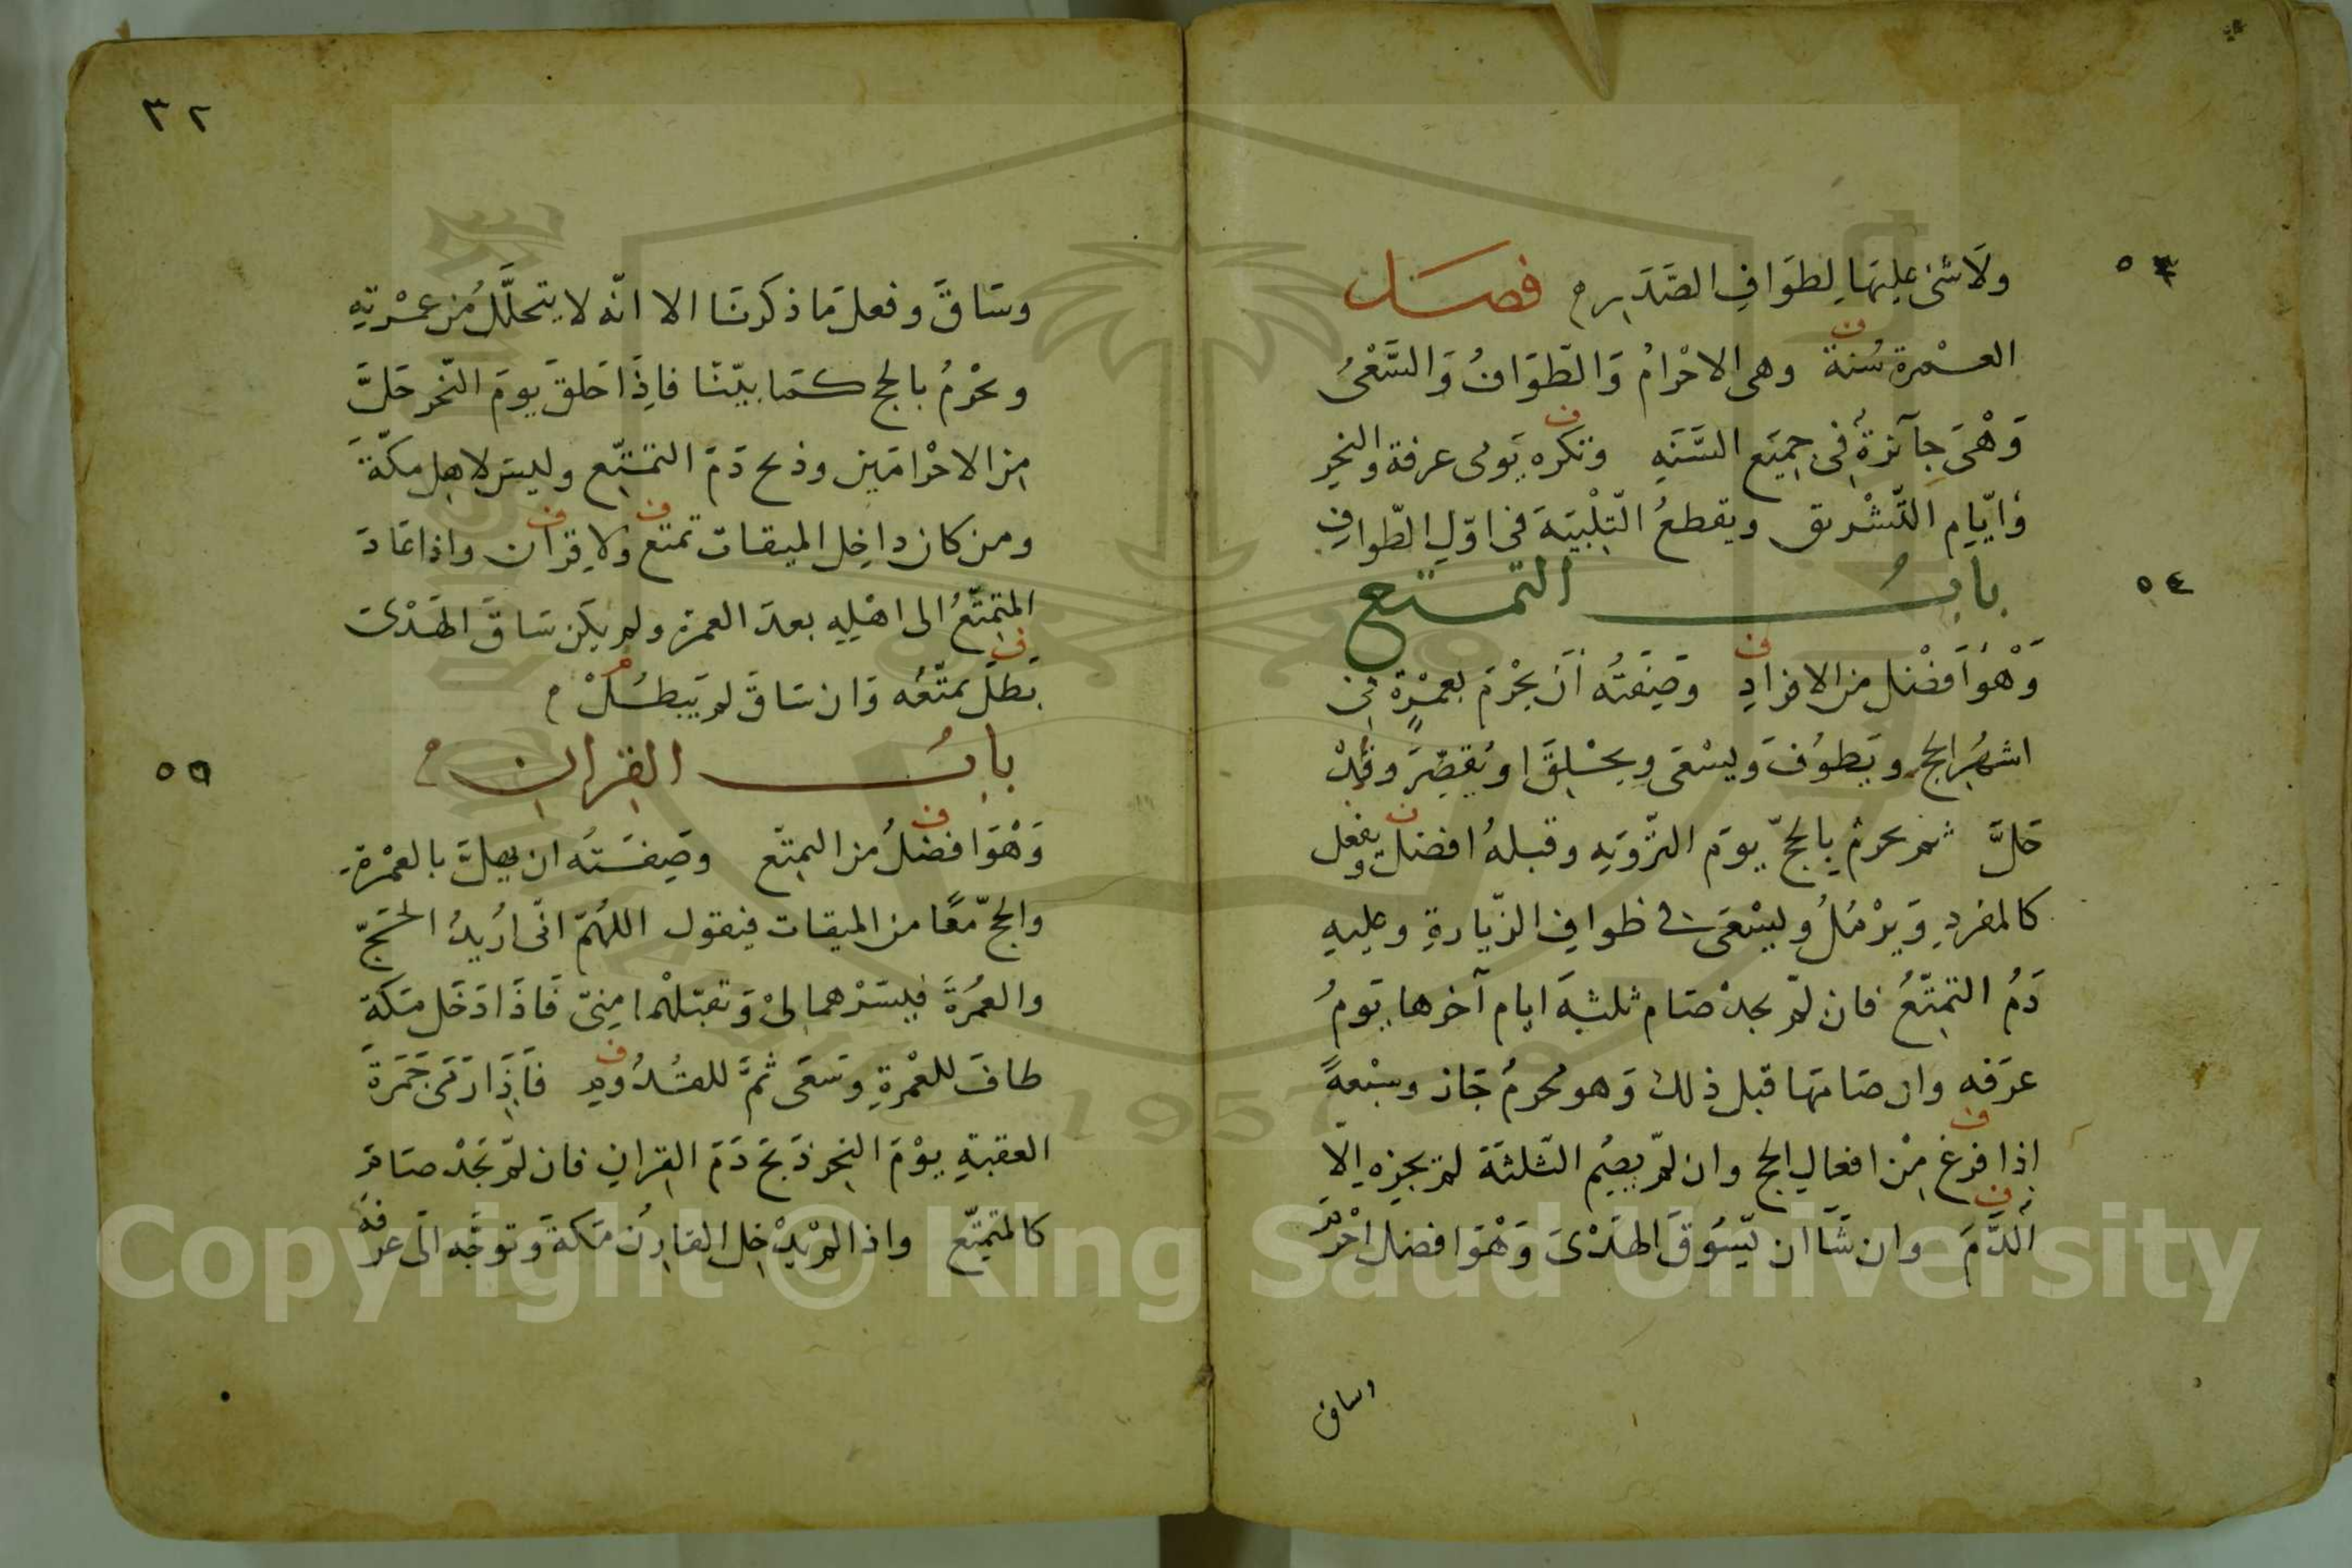 ولا شئ عليها لطواف الصدر م فصل
العمرة سنة وهى الاحرام والطواف والسعى
وهى جآئزة فى جميع السنه وتكره يومى عرفة والنحر
وايام التشريق ويقطع التلبية فى اول الطواف
باب التمتع
وهو افضل من الافراد وصفته ان يحرم بعمرة فى
اشهر الحج ويطوف ويسعى ويحلق او يقصر وقد
حل ثم يحرم بالحج يوم التروية وقبله افضل ويفعل
كالمفرد ويرمل ويسعى فى طواف الزيارة وعليه
دم التمتع فان لم يجد صام ثلثة ايام آخرها يوم
عرفه وان صامها قبل ذلك وهو محرم جاز وسبعة
اذا فرغ من افعال الحج وان لم يصم الثلثة لم يجزه الا
الدم وان شا ان يسوق الهدى وهو افضل احرم
وساق
٥٣
٥٤
٣٢
وساق وفعل ما ذكرنا الا انه لا يتحلل من عمرته
ويحرم بالحج كما بينا فاذا حلق يوم النحر حل
من الاحرامين وذبح دم التمتع وليس لاهل مكة
ومن كان داخل الميقات تمتع ولا قران واذا عاد
المتمتع الى اهله بعد العمرة ولم يكن ساق الهدى
بطل تمتعه وان ساق لم يبطل م
باب القران
وهو افضل من التمتع وصفته ان يهل بالعمرة
والحج معا من الميقات فيقول اللهم انى اريد الحج
والعمرة فيسرهما لى وتقبلهما منى فاذا دخل مكة
طاف للعمرة وسعى ثم للقدوم فاذا رمى جمرة
العقبة يوم النحر ذبح دم القران فان لم يجد صام
كالمتمتع واذا لم يدخل القارن مكة وتوجه الى عرفة
٥٥
Copyright © King Saud University
1957